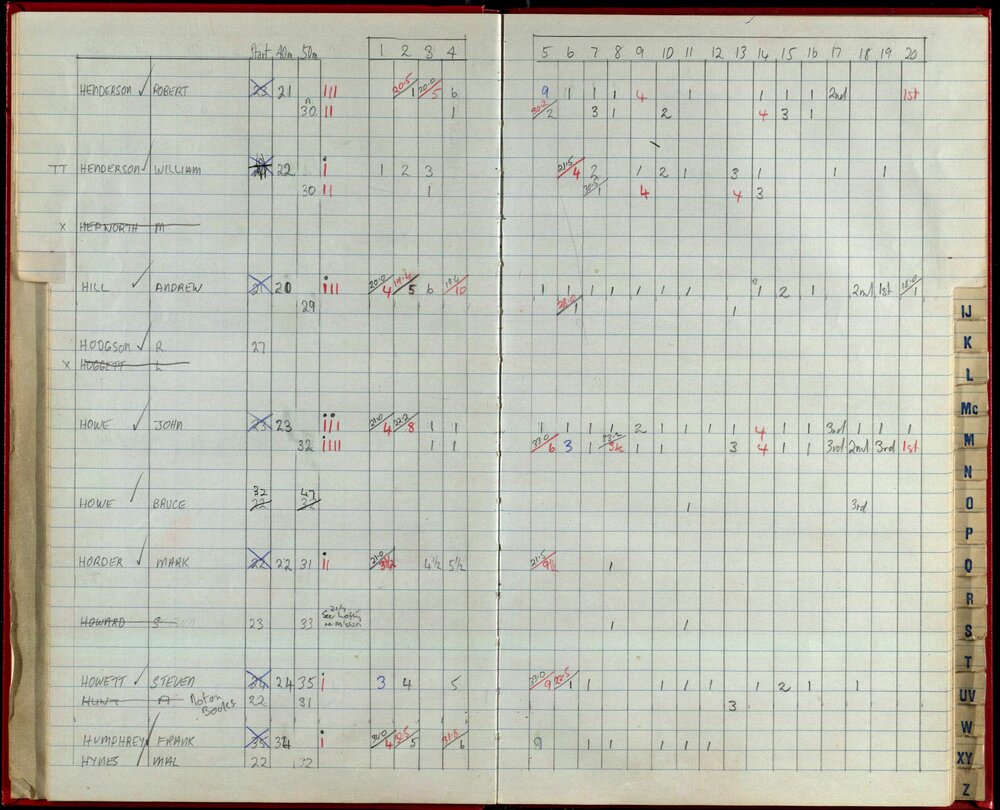 Start 40m 50m 1 2 3 4 5 6 7 8 9 10 11 12 13 14 15 16 17 18 19 20
HENDERSON ROBERT 21 III 20.5 1 20.0 5 6 9 1 1 1 4 1 1 1 1 2nd 1st
A
30 II 1 30.2 2 3 1 2 4 3 1
TT HENDERSON WILLIAM 22 i 1 2 3 21.5 4 2 1 2 1 3 1 1 1
30 II 1 30.5 1 4 4 3
X HEPWORTH M
HILL ANDREW 21 20 iII 20.0 4 19.6 5 6 19.6 10 1 1 1 1 1 1 1 1 1 2 1 2nd 1st 18.0 1
29 28.0 1 1
HODGSON R 27
X HOGGETT L
HOWE JOHN 23 23 21.0 4 22.2 8 1 1 1 1 1 1 2 1 1 1 1 4 1 1 3rd 1 1 1
32 iIII 1 1 6 3 1 1 3 4 1 1 3rd 2nd 3rd 1st
32 47
HOWE BRUCE 22 32 1 3rd
HORDER MARK 22 22 31 II 21.0 3½ 4½ 5½ 21.5 9½ 1
HOWARD S 23 33 See 1 1
HOWETT STEVEN 24 24 35 i 3 4 5 23.0 9 22.5 1 1 1 1 1 1 1 2 1 1
HUNT A Not on Books 22 31 3
HUMPHREY FRANK 35 34 i 4 5 31.8 6 9 1 1 1 1 1
HYNES MAL 22 32
IJ
K
L
Mc
M
N
O
P
Q
R
S
T
UV
W
XY
Z